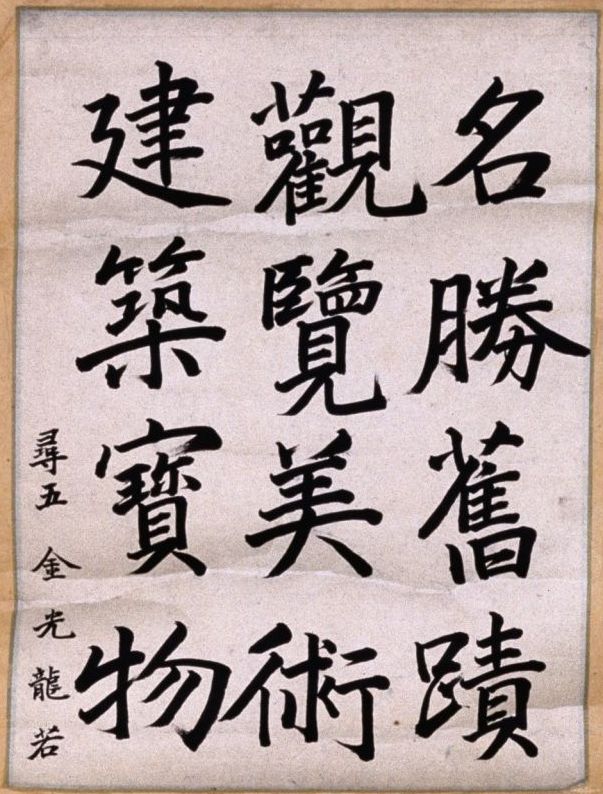 名勝舊蹟
觀覽美術
建築寶物
尋五 金光龍若